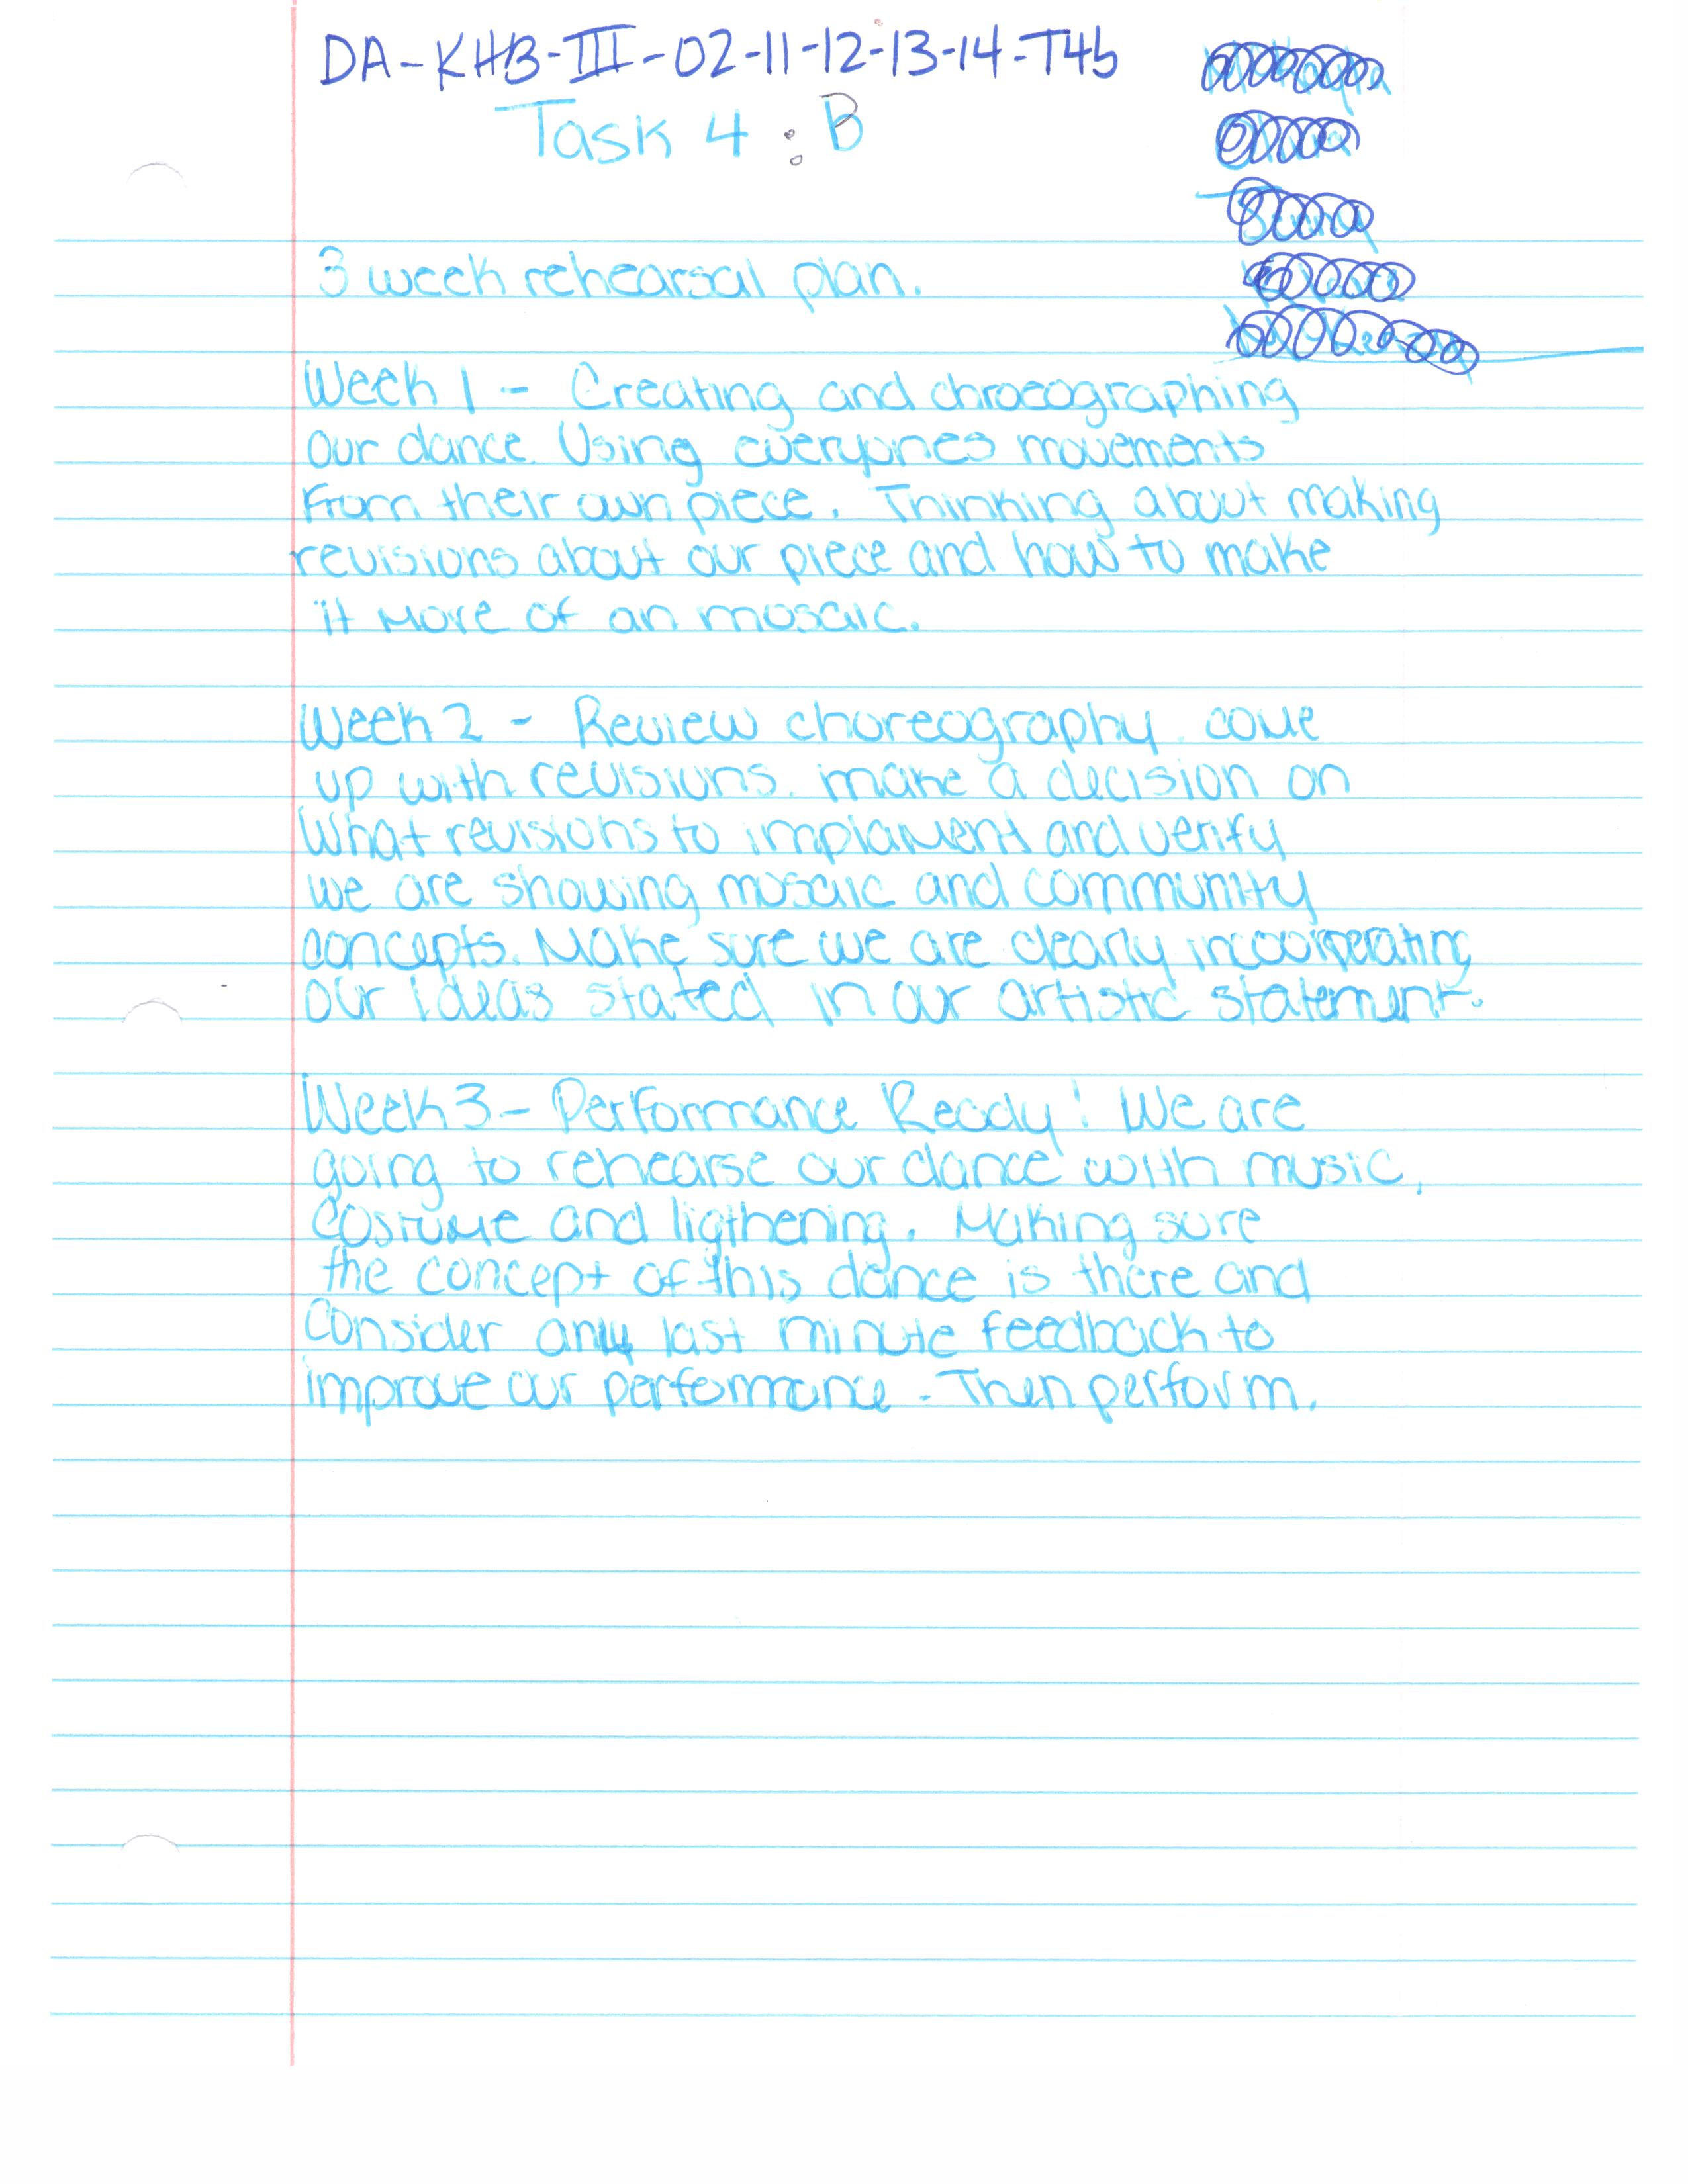 DA-KHB-III-02-11-12-13-14-T4b
Task 4 : B
3 week rehearsal plan.
Week 1 - Creating and chroeographing
our dance. Using everyones movements
from their own piece. Thinking about making
revisions about our piece and how to make
it more of an mosaic.
Week 2 - Review choreography. come
up with revisions. make a decision on
what revisions to implament and verify
we are showing mosaic and community
concepts. Make sure we are clearly incoorperating
our ideas stated in our artistic statement.
Week 3 - Performance Ready! We are
going to rehearse our dance with music,
costume and ligthening. Making sure
the concept of this dance is there and
consider any last minute feedback to
improve our performance. Then perform.